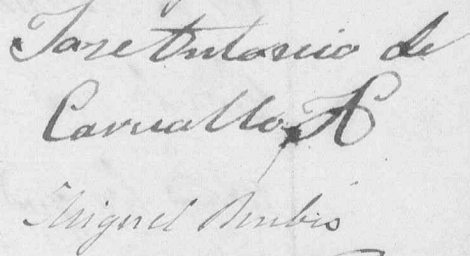 Jose Antonio de
Carvallo
Miguel Rubio